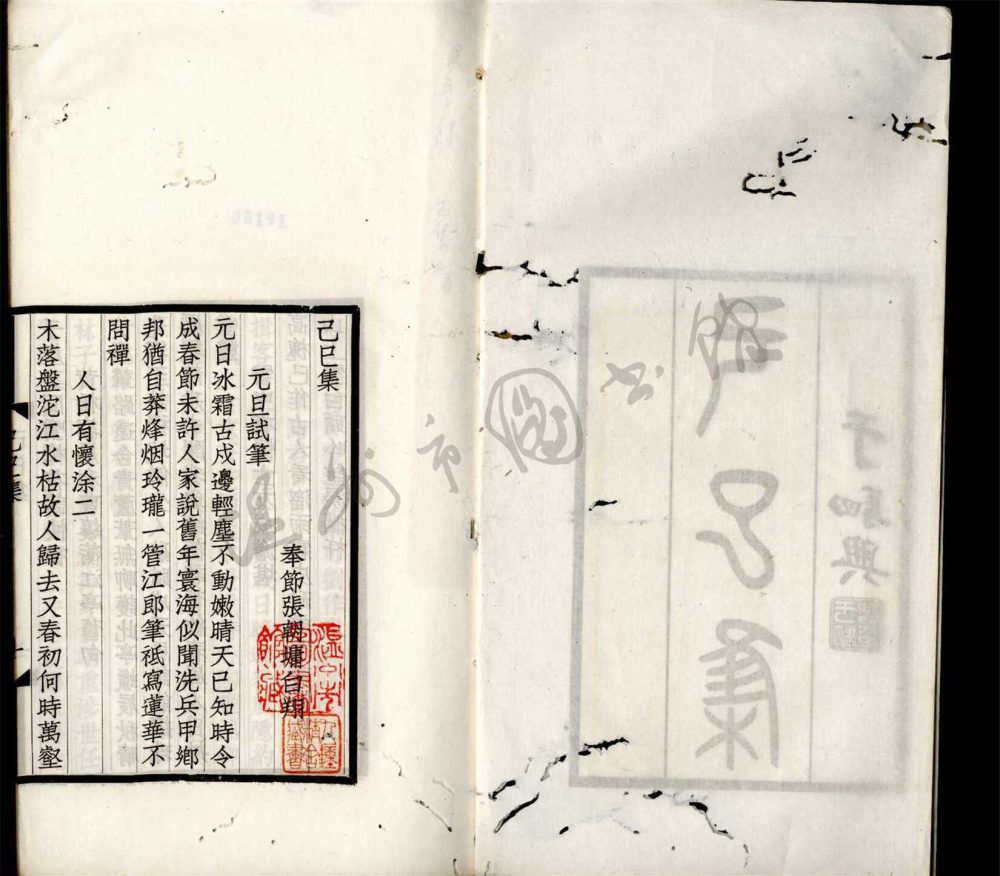 己巳集
奉節張朝墉白翔
元旦試筆
元日冰霜古戍邊輕塵不動嫩晴天已知時令
成春節未許人家說舊年寰海似聞洗兵甲鄉
邦猶自莽烽烟玲瓏一管江郎筆祇寫蓮華不
問禪
人日有懷涂二
木落盤沱江水枯故人歸去又春初何時萬壑